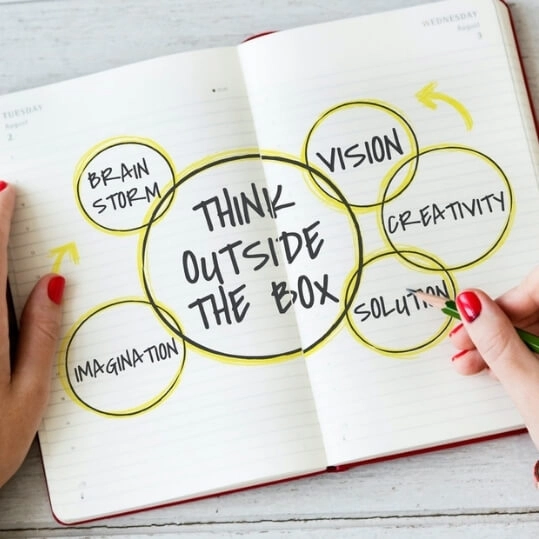 TUESDAY
August
2
WEDNESDAY
August
3
BRAIN
STORM
THINK
OUTSIDE
THE BOX
VISION
CREATIVITY
SOLUTION
IMAGINATION